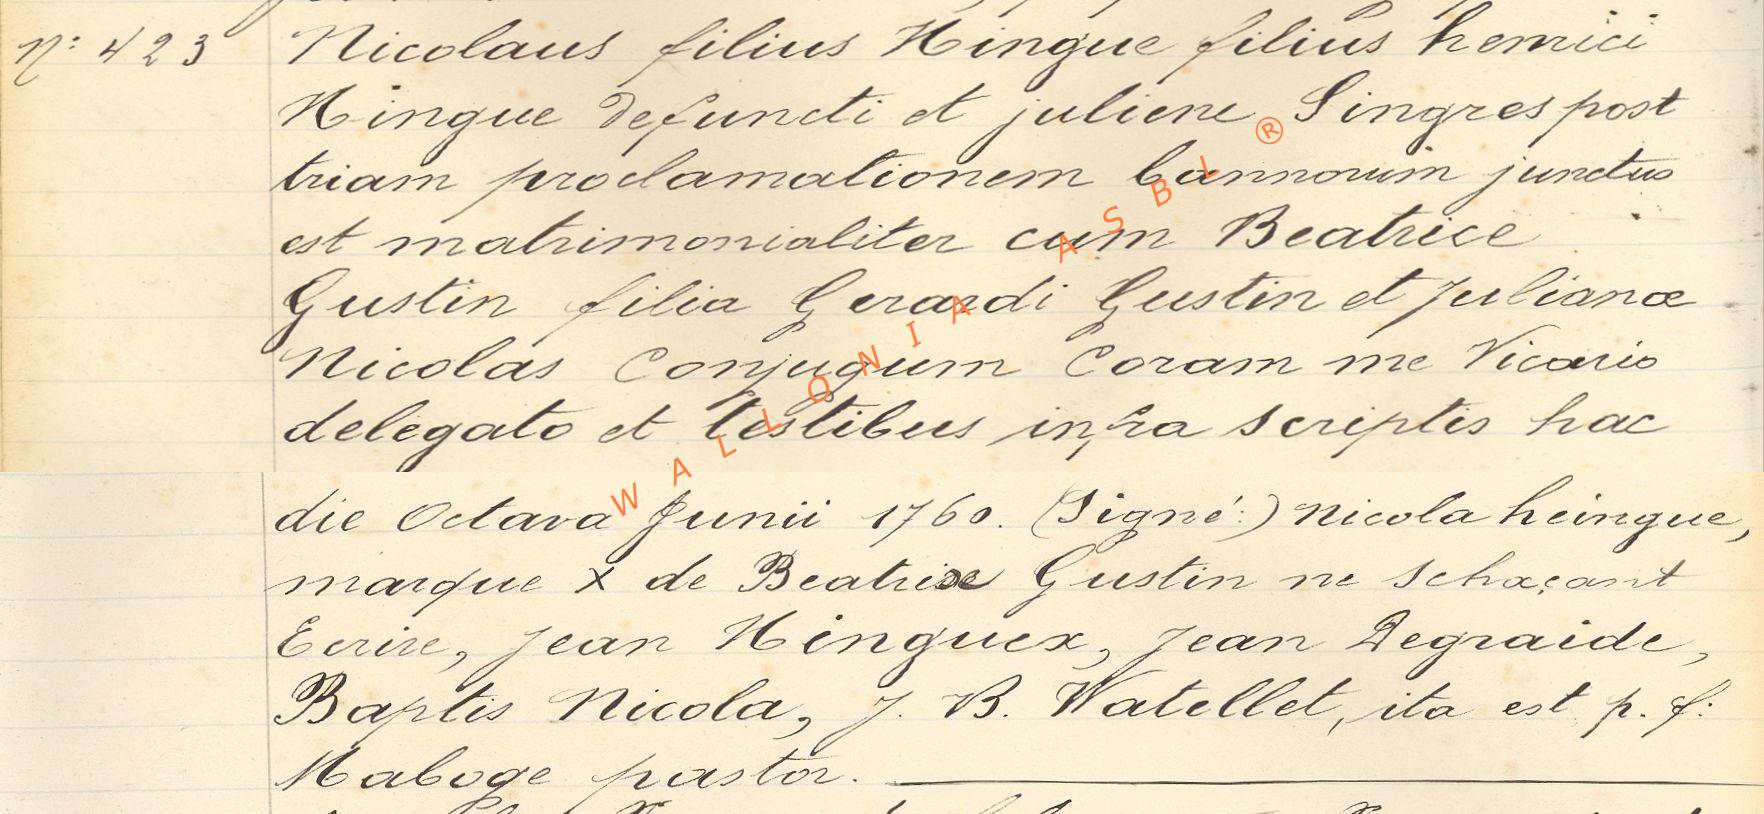 N: 423 Nicolaus filius Hingue filius henrici
Hingue defuncti et juliene Singres post
triam proclamationem bannorum junctus
est matrimonialiter cum Beatrice
Gustin filia Gerardi Gustin et Julianæ
Nicolas Conjugum Coram me Vicario
delegato et testibus infra scriptis hac
die Octava Junii 1760. (Signé:) Nicola heingue,
marque X de Beatrixe Gustin ne schaçant
Ecrire, Jean Hinguex, Jean Degraide,
Baptis Nicola, J. B. Watellet, ita est p. f:
Maboge pastor.
WALLONIA ASBL ®